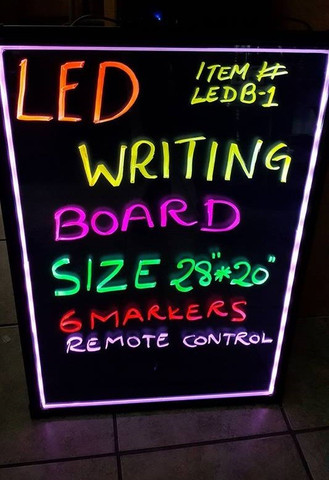 LED
ITEM #
LEDB-1
WRITING
BOARD
SIZE 28"*20"
6 MARKERS
REMOTE CONTROL